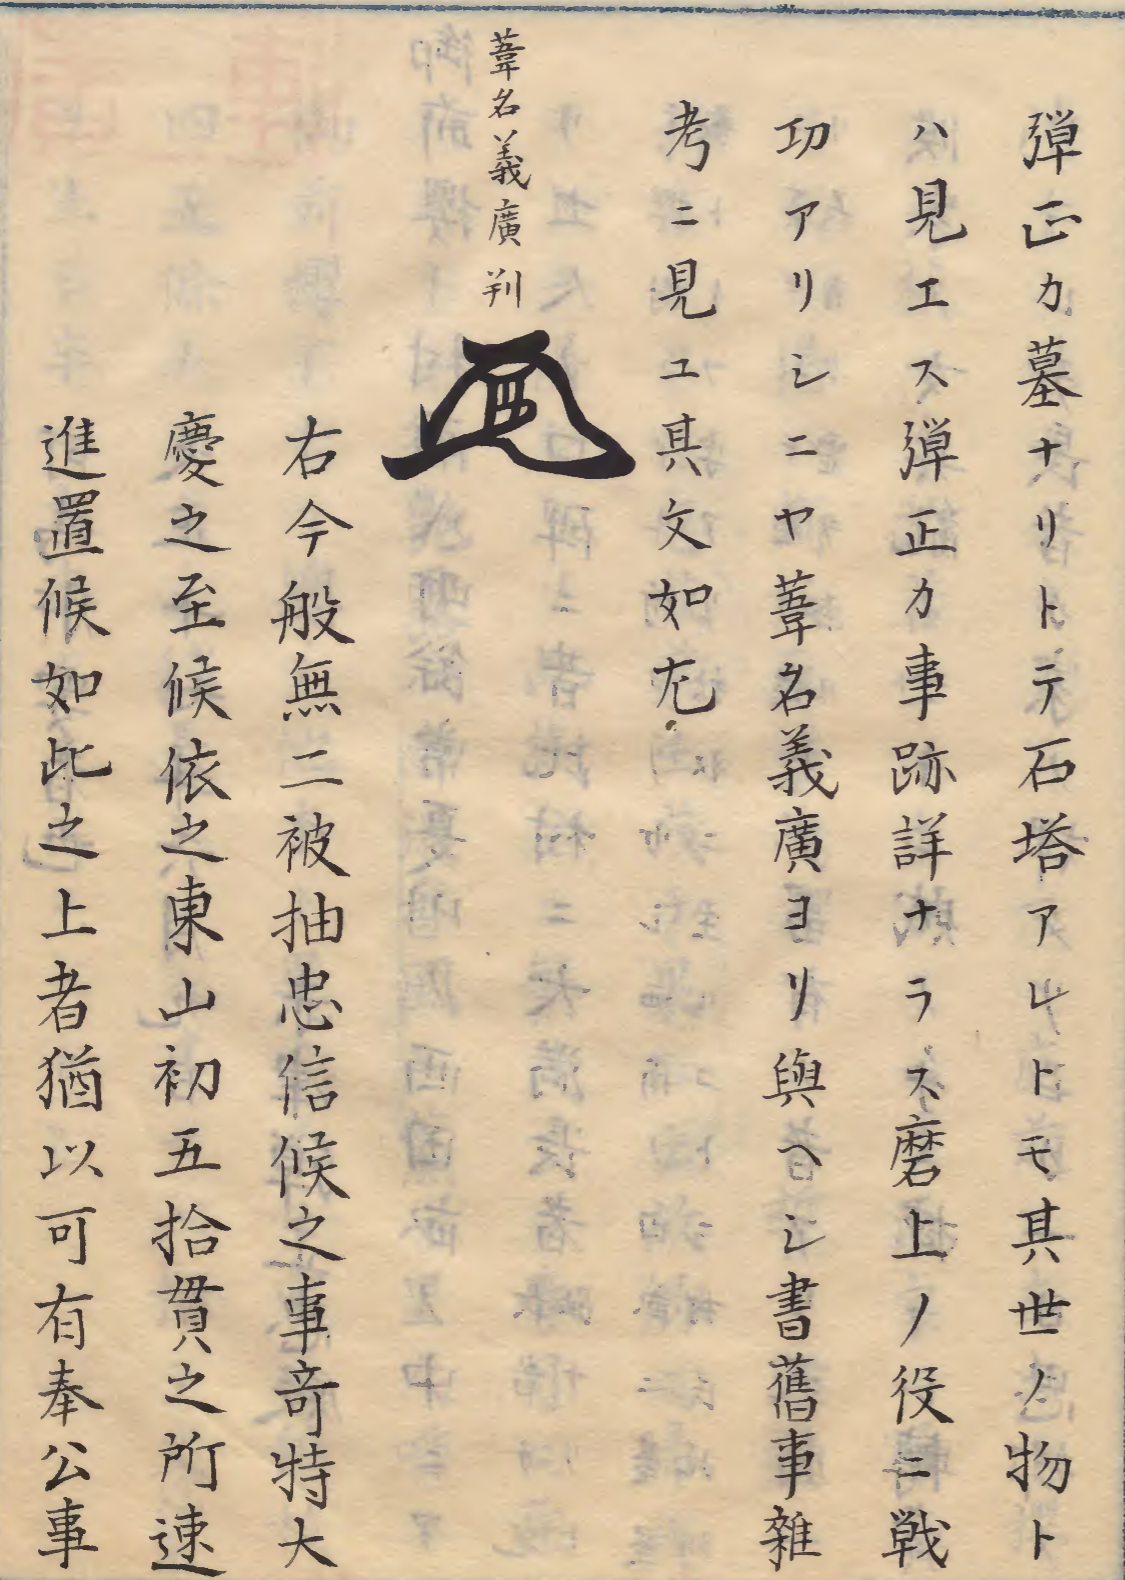 彈正カ墓ナリトテ石塔アレトモ其世ノ物ト
ハ見エス彈正カ事跡詳ナラス磨上ノ役ニ戦
功アリシニヤ葦名義廣ヨリ與ヘシ書舊事雜
考ニ見ユ其文如左
葦名義廣判
右今般無二被抽忠信候之事竒特大
慶之至候依之東山初五拾貫之所速
進置候如此之上者猶以可有奉公事